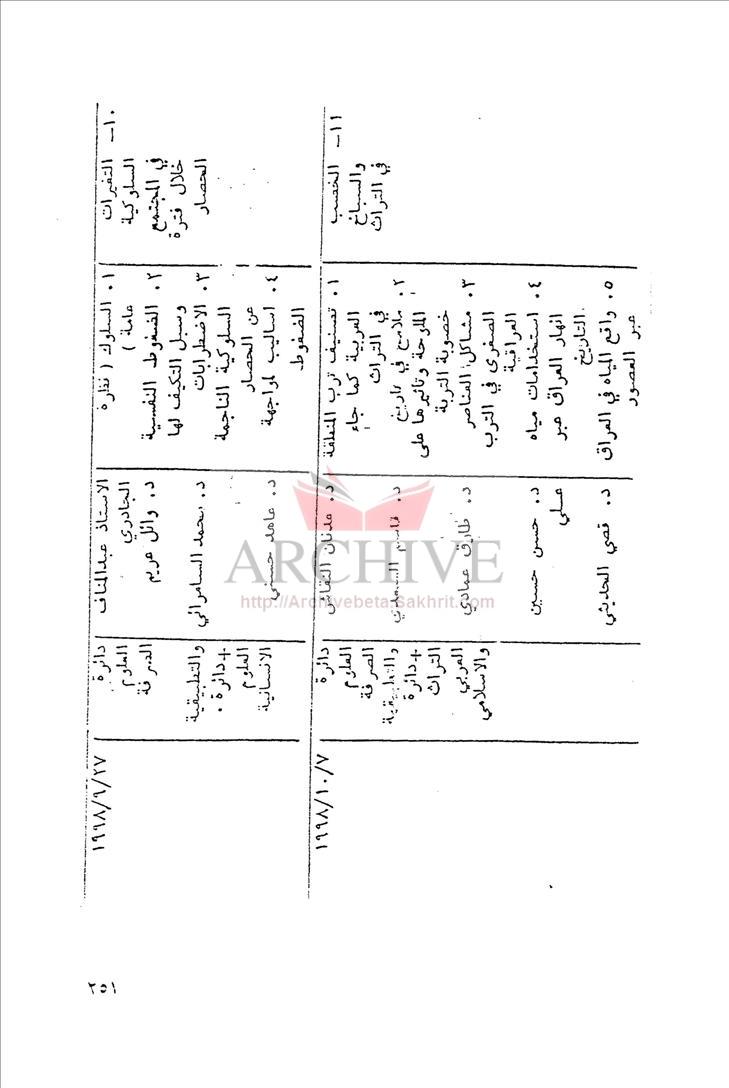 ١٠ــ التغيرات
السلوكية
في المجتمع
خلال فترة
الحصار
١. السلوك ( نظرة
عامة )
٢. الضغوط النفسية
وسبل التكيف لها
٣. الاضطرابات
السلوكية الناجمة
عن الحصار
٤. اساليب لمواجهة
الضغوط
الاستاذ عبدالمناف
الجادري
د. وائل عريم
د. محمد السامرائي
د. عامد حسني
دائرة
العلوم
الصرفة
والتطبيقية
+ دائرة
العلوم
الانسانية
١٩٩٨/٩/٢٧
١١ــ الخصب
والسباخ
في التراث
١. تصنيف ترب المنطقة
العربية كما جاء
في التراث
٢. ملامح في تاريخ
الملوحة وتأثيرها على
خصوبة التربة
٣. مشاكل العناصر
الصغرى في الترب
العراقية
٤. استخدامات مياه
انهار العراق عبر
التاريخ
٥. واقع المياه في العراق
عبر العصور
د. عدنان النقاش
د. قاسم السعدي
د. طارق عمادي
د. حسن حسين
علي
د. قصي الحديثي
دائرة
العلوم
الصرفة
والتطبيقية
+ دائرة
التراث
العربي
والاسلامي
١٩٩٨/١٠/٧
ARCHIVE
http://Archivebeta.Sakhrit.com
٢٥١